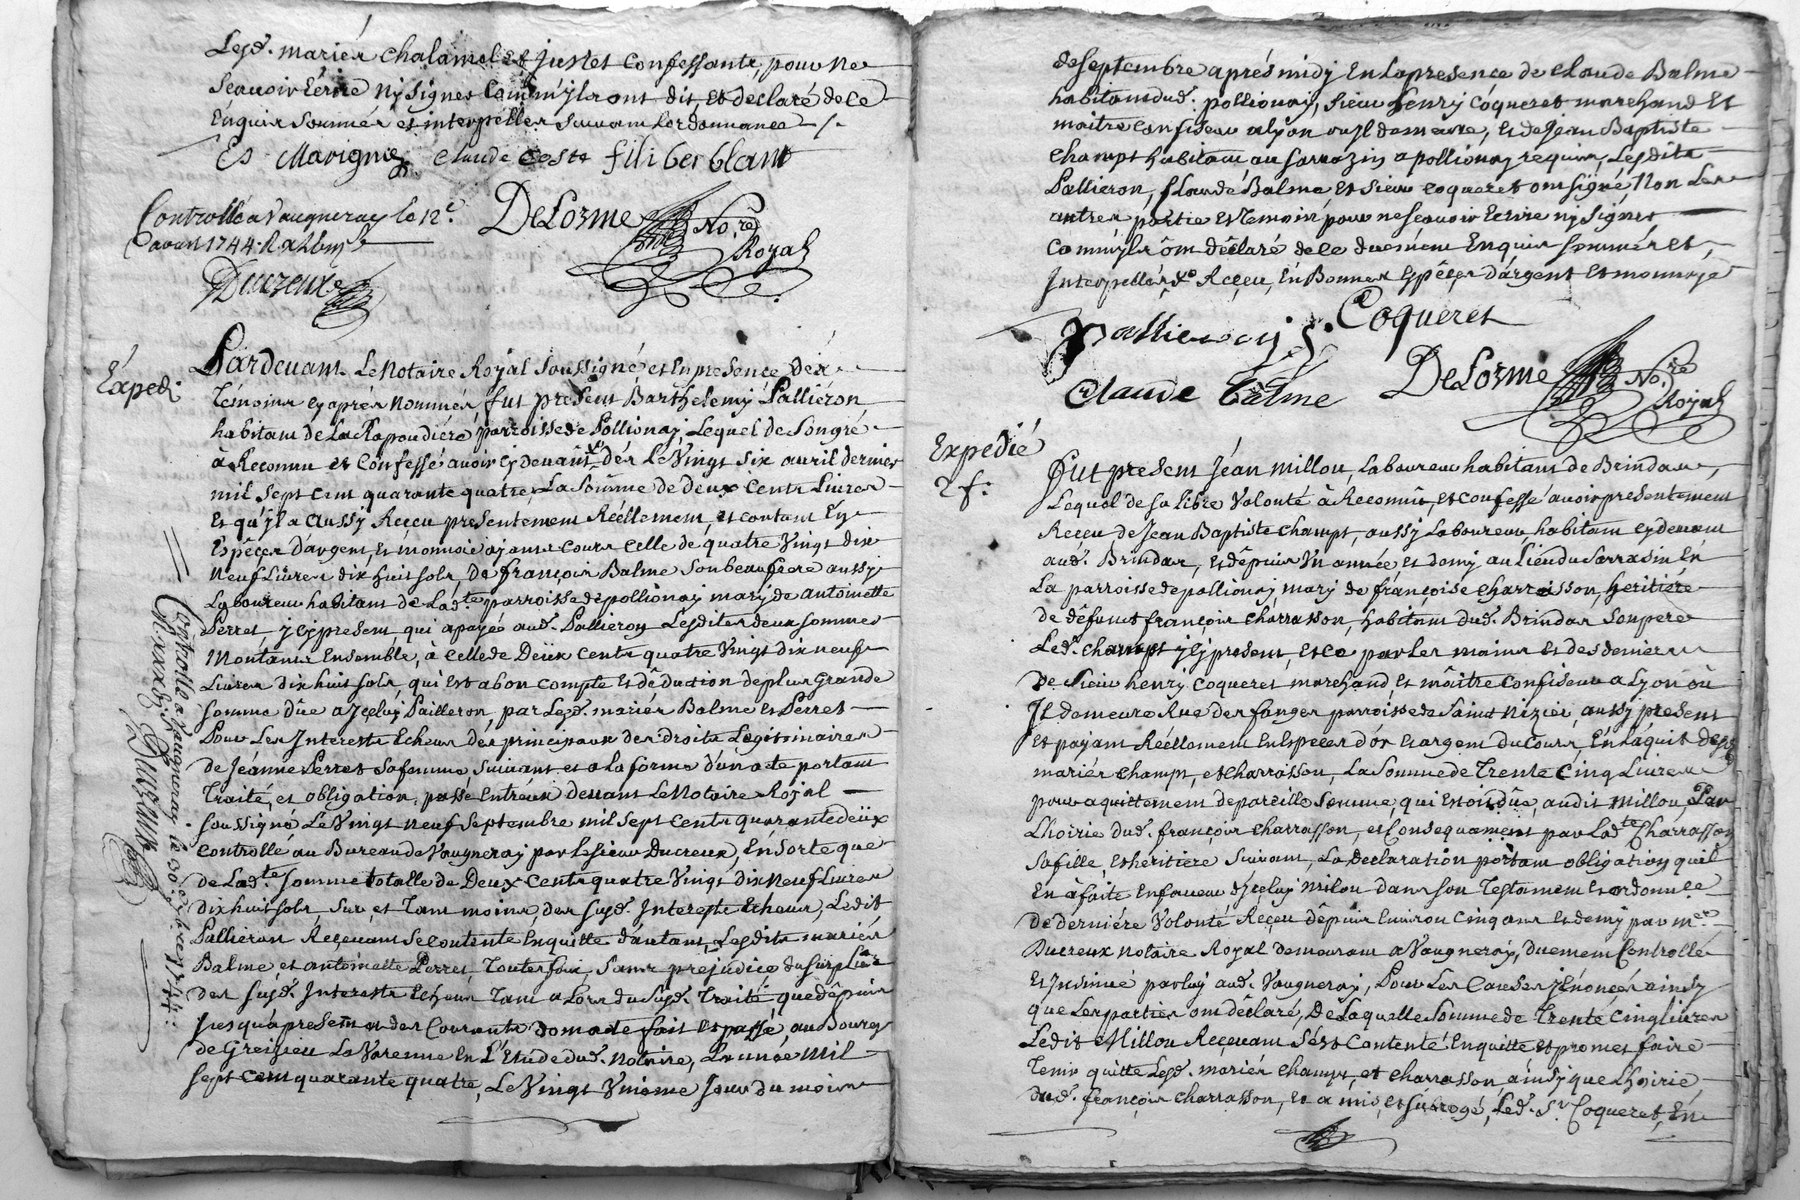 Lesd. mariés Chalamel et Juset Confessants, pour ne
Scavoir Ecrire ny Signer Comm'ylz ont dit, et declaré de ce
Enquis Sommés et interpellés Suivant Lordonnance /.
Es Mavignes Claude Coste filiber blanc
Controllé a Vaugneray le 12e.
avril 1744. R
DeLorme No.re
Royal
Ducreux
Expedi
Pardevant Le Notaire Royal Soussigné et En presence Des
Témoins Cy aprés Nommés, fut present Barthelemy Pallieron
habitant de La Rapoudiere parroisse de Pollionay, Lequel de Son gré
à Reconnu et Confessé avoir cy devant dés Le Vingt Six avril dernier
mil Sept Cent quarante quatre La Somme de deux Cents Livres
Et qu'yl a aussy Reçeu presentement Réellement, et contant En
Espêces d'argent, et monnoie ayant Cours Celle de quatre Vingt dix
Neuf Livres dix huit Sols, De françois Balme Son beau frere aussy
Laboureur habitant de Lad.te parroisse de pollionay mary de antoinette
Perret, y cy present, qui a payé aud. Pallieron Lesdites deux Sommes
Montants Ensemble, à Celle de Deux Cents quatre Vingt dix neuf
Livres dix huit Sols, qui Est a bon Compte et déduction de plus Grande
Somme dûe a Jceluy Pailleron, par Lesd. mariés Balme et Perret
Pour Les Interets Echeus des principaux des droits Legitimaires
de Jeanne Perret Sa femme, Suivant et a La forme d'un acte portant
Traité, et obligation, passé Entreux devant Le Notaire Royal
Soussigné Le Vingt neuf Septembre mil Sept Cents quarante deux
Controllé au Bureau de Vaugneray par le Sieur Ducreux, En Sorte que
de Lad.te Somme totalle de Deux Cents quatre Vingt dix Neuf Livres
dix huit Sols, Sur, et Tant moins des Susd. Interets Echeus, Ledit
Pallieron Reçevant Se Contente En quitte d'autant, Lesdits mariés
Balme, et antoinette Perret, Toutes fois, Sans prejudice du Surplus
des Susd. Interets Echeus Tant a Lors du Susd. Traité, que depuis
Jusqu'a present et des Courants dont acte fait et passé, au Bourg
de Greizieu La Varenne En L'Etude dud. Notaire, L'année Mil
Sept Cent quarante quatre, Le Vingt Unieme Jour du mois
Controllé a Vaugneray le 30e 7bre 1744:
Ducreux
de Septembre aprés midy En La presence de Claude Balme
habitant dud. pollionay, Sieur henry Coqueret marchand Et
maitre Confiseur a Lyon ou Il demeure, Et de Jean Baptiste
Champt habitant au Sarrazin a pollionay requis, Lesdits
Pallieron, Claude Balme Et Sieur Coqueret ont Signé Non Les
autres partie Et Temoins pour ne Scavoir Ecrire ny Signer
Comm'ylz ont déclaré de Ce duement Enquis Sommés Et,
Interpellés Reçeu, En Bonnes Espêces d'argent Et monnoye
Pallieron Coqueret
Claude Balme DeLorme No.re
Royal
Expedié
2 f:
Fut present Jéan Millou, Laboureur habitant de Brindas,
Lequel de Sa Libre Volonté à Reconnû, et Confessé avoir presentement
Reçeu de Jean Baptiste Champt, aussy Laboureur habitant cy devant
aud. Brindas, Et dêpuis Un année, et demy au Lieu du Sarrasin En
La parroisse de pollionay mary de françoise Charrasson, heritiere
de défunt françois Charrasson, habitant dud. Brindas Son pere
Led. Champt y cy present, et ce par les mains et des deniers
De Sieur henry Coqueret marchand Et maître Confiseur a Lyon où
Il demeure Rue des fanges parroisse de Saint Nizier, aussy present
Et payant Réellement En Especes d'or Et argent du Cours, En Laquit desd.
mariés Champt, et Charrasson, La Somme de Trente Cinq Livres
pour aquittement de pareille Somme qui Estoit dûe, audit Millou, Par
L'hoirie dud. françois Charrasson, et Consequament par Lad.te Charrasson
Sa fille, Et heritiere Suivant, La Declaration portant obligation quil
En à faite En faveur d'Jceluy Milou dans Son Testament Et ordonnée
de derniére Volonté Reçeu dépuis Environ Cinq ans Et demy par me
Ducreux notaire Royal demeurant a Vaugneray, Duement Controllé
Et Jnsinué par luy aud. Vaugneray, Pour Les Causes y Enoncés ainsy
que Les parties ont déclaré, De Laquelle Somme de Trente Cinq Livres
Ledit Millou Reçevant S'est Contenté En quitte et promet faire
Tenir quitte Lesd. mariés Champt, et Charrasson ainsy que L'hoirie
dud. françois Charrasson, Et a mis, et Subrogé, Led. Sr. Coqueret, En